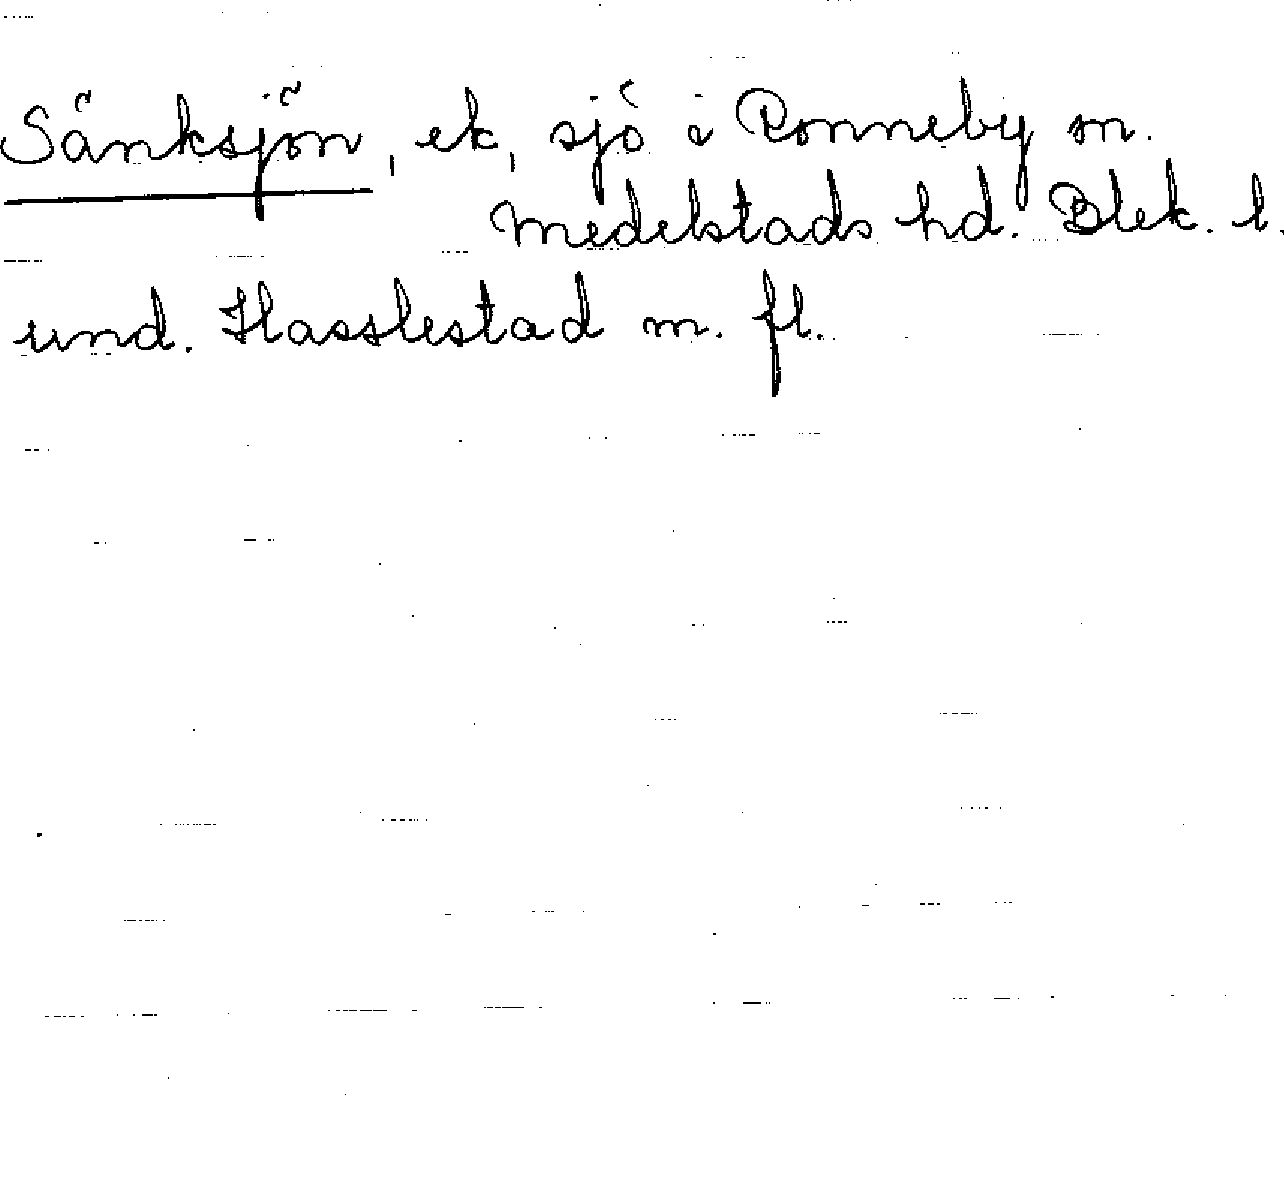 Sänksjön, ek, sjö i Ronneby sn.
Medelstads hd. Blek. l.
und. Hasslestad m. fl.